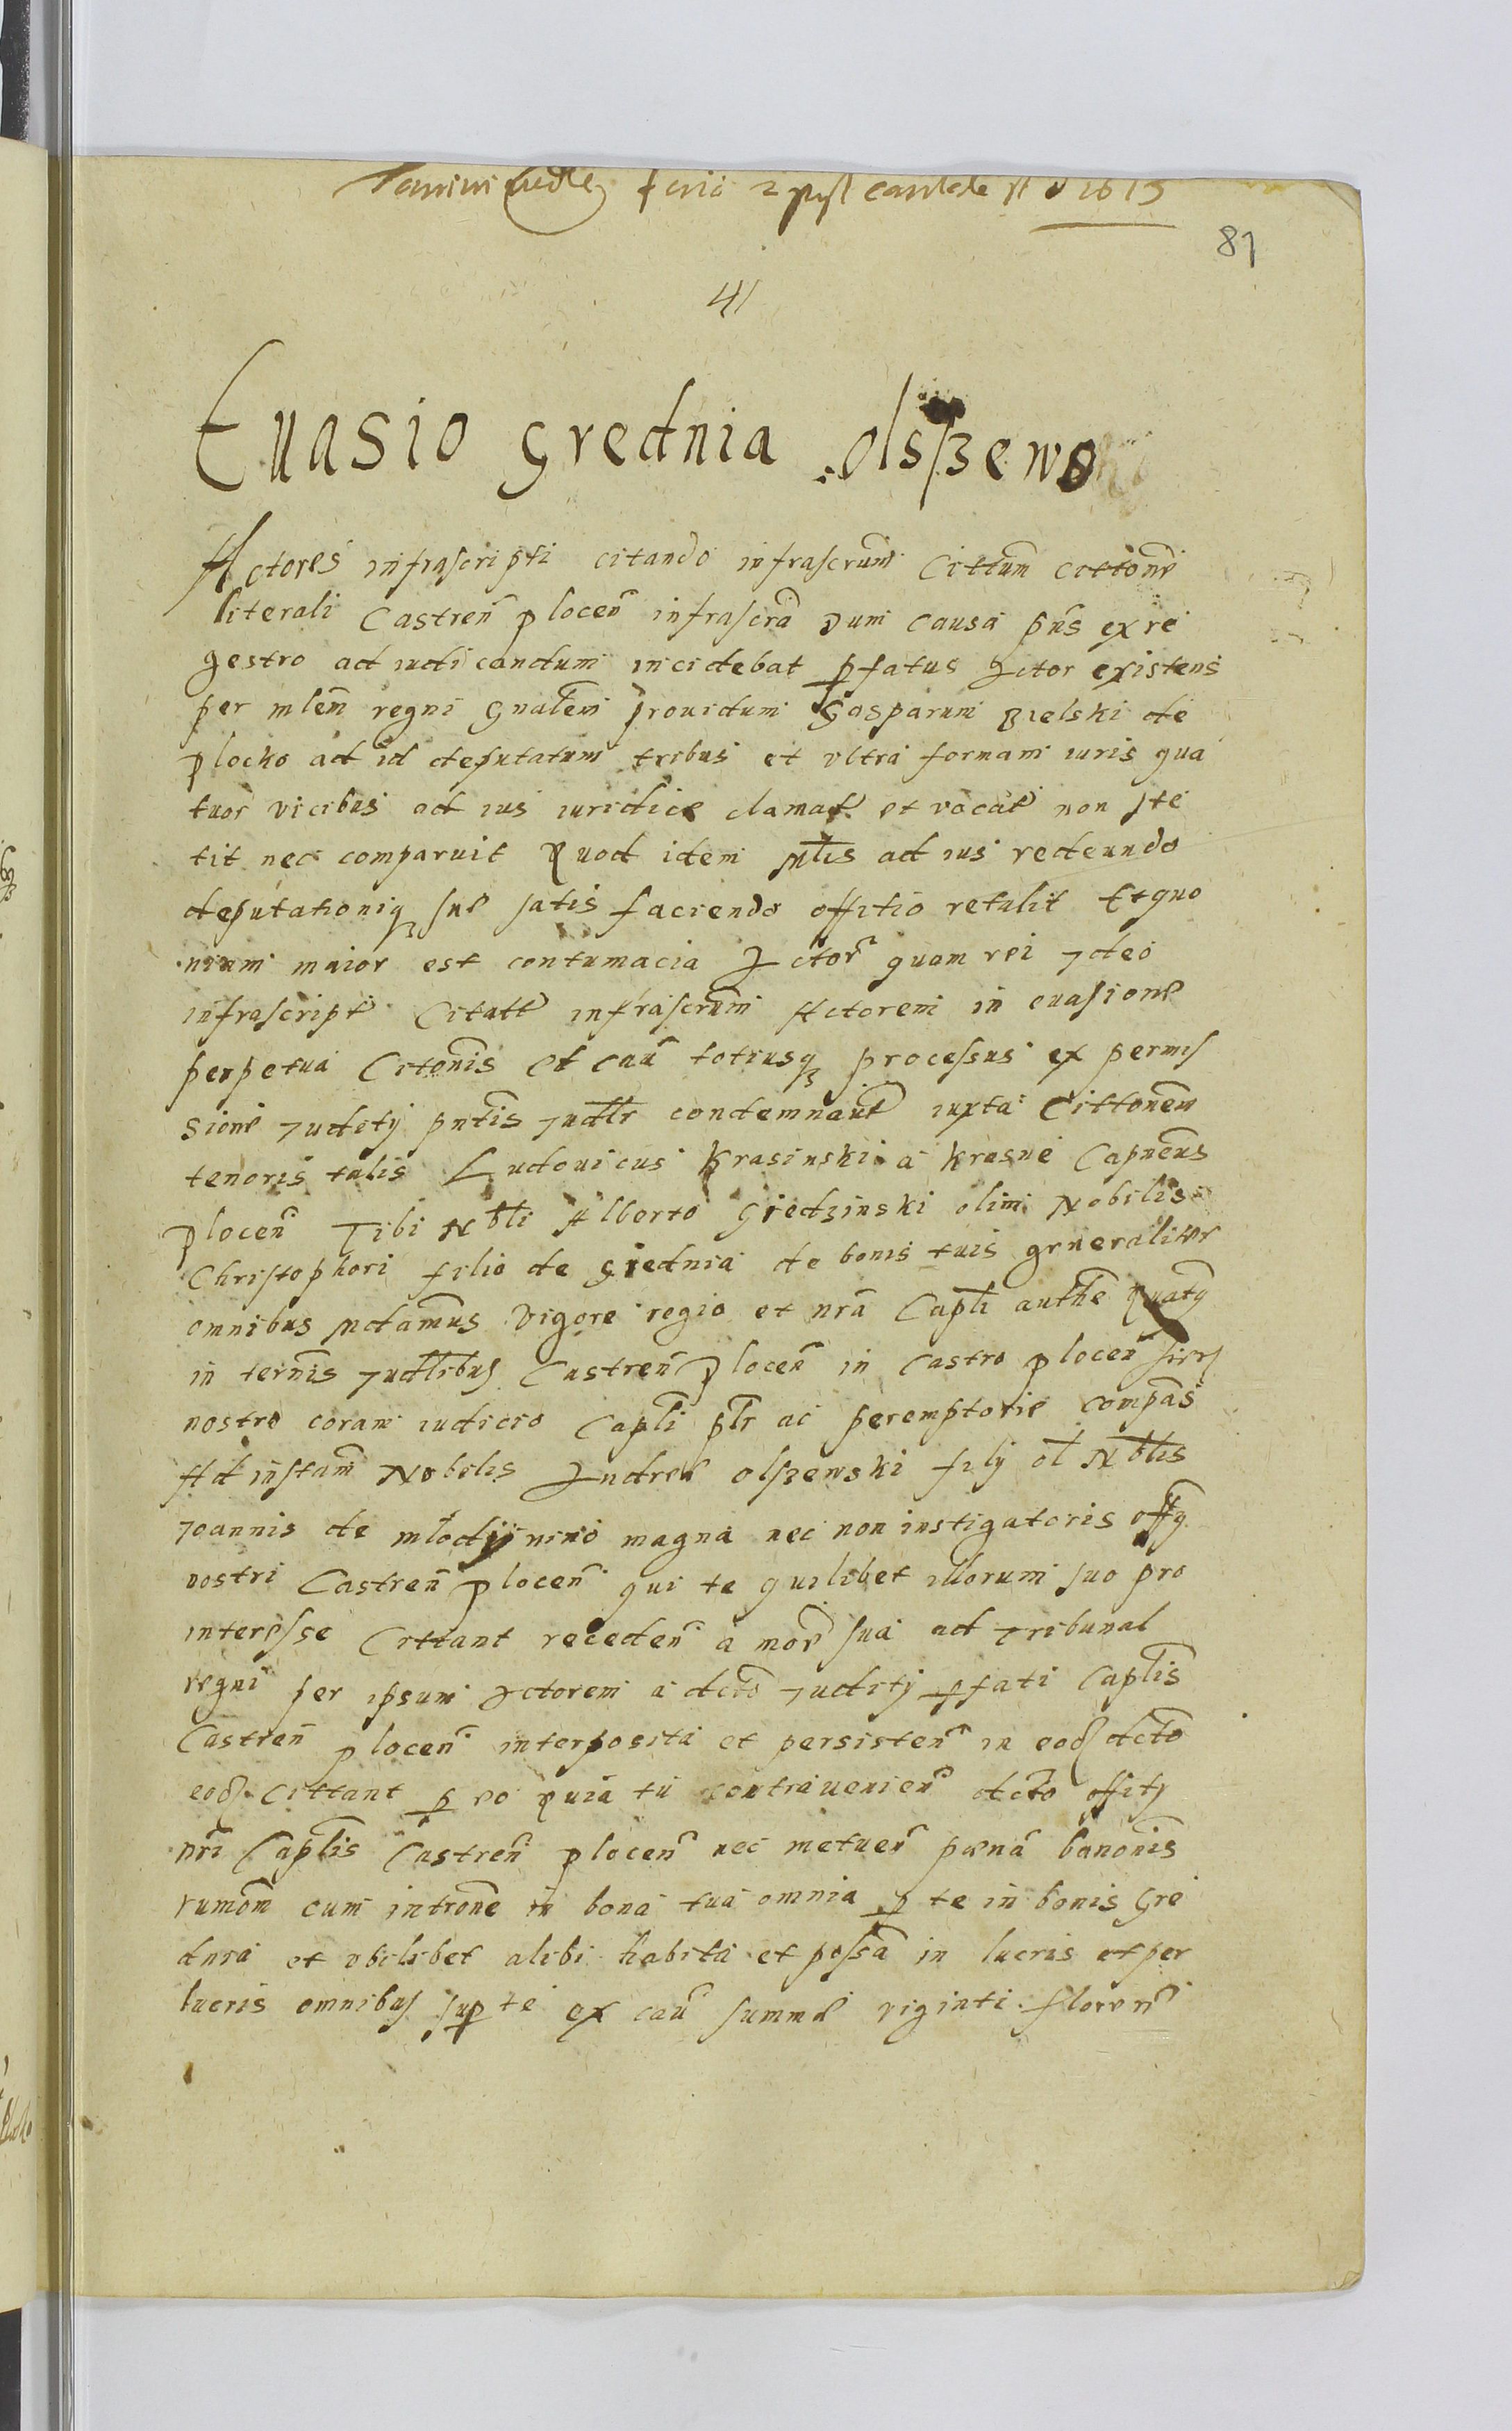 Termini Judles feria 2 post cantate A D 1613
81
41
Evasio Grednia Olsszewo
Actores infrascripti citando infrascrum Cittum cittone
literali Castren plocen infrascra dum causa pns ex re
gestro ad iudicandum incidebat pfatus Actor existens
per mlem regni gnalem providum Gasparum Bielski de
plocko ad id deputatum tribus et ultra formam iuris qua
tuor vicibus ad ius iuridice clamat et vocat non ste
tit nec comparuit Quod idem Mlis ad ius redeundo
deputationiq sue satis faciendo offitio retulit Et quo
niam maior est contumacia Actor quam rei Ideo
infrascript Citatt infrascrum Actorem in evasione
perpetua Citonis et cau totiusq processus ex permis
sione Judity pntis Judlr condemnavt iuxta Cittonem
tenoris talis Ludovicus Krasinski a Krasne Capneus
plocen Tibi Nbli Alberto Gredzinski olim Nobilis
Christophori filio de Grednia de bonis tuis generaliter
omnibus Mdamus Vigore regio et nra Capli authe Quatg
in ternis Judlibus Castren plocen in Castro plocen
nostro coram iudicio Capli plr ac peremptorie compas
Ad instam Nobilis Andree Olszewski fily ol Nblis
Joannis de Mlodynino magna nec non instigatoris offy
nostri Castren plocen qui te quilibet illorum suo pro
interesse Cittant receden a moe sua ad Tribunal
regni per ipsum Actorem a dcto Judity pfati Caplis
Castren plocen interposita et persisten in eod dcto
eod Cittant p eo quia tu contravenien dcto offity
nri Caplis Castren plocen nec metuen pæna banonis
rumom cum introne in bona tua omnia p te in bonis Gre
dnia et ubilibet alibi habita et possa in lucris et per
lucris omnibus sup te ex cau summæ viginti floren